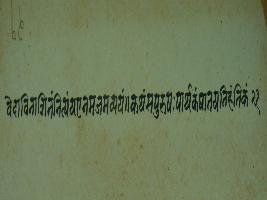 वेदाविनाशिनं नित्यं यएनमजमव्ययं ॥ कथं सपुरुषः पार्थ कं घातयति हंति कं २१